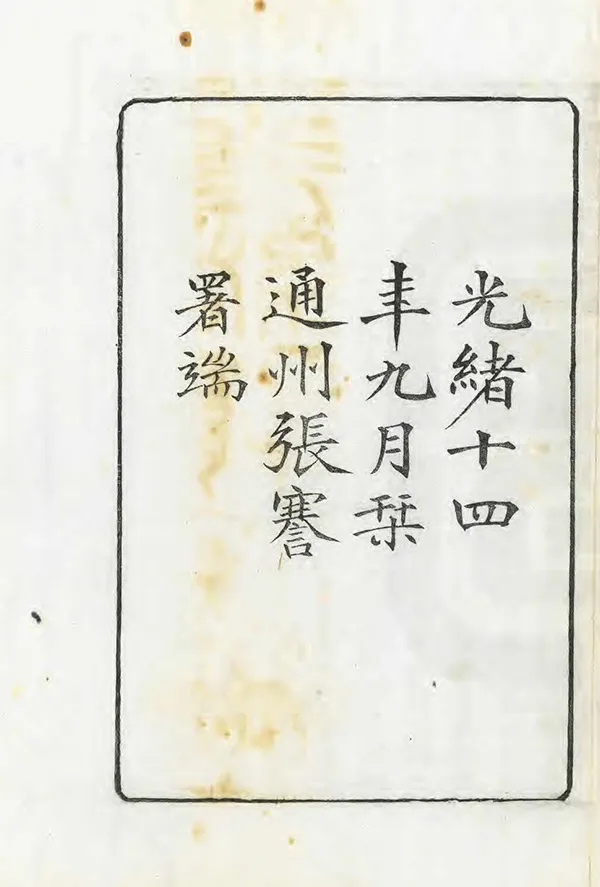 光緒十四
年九月栞
通州張謇
署端